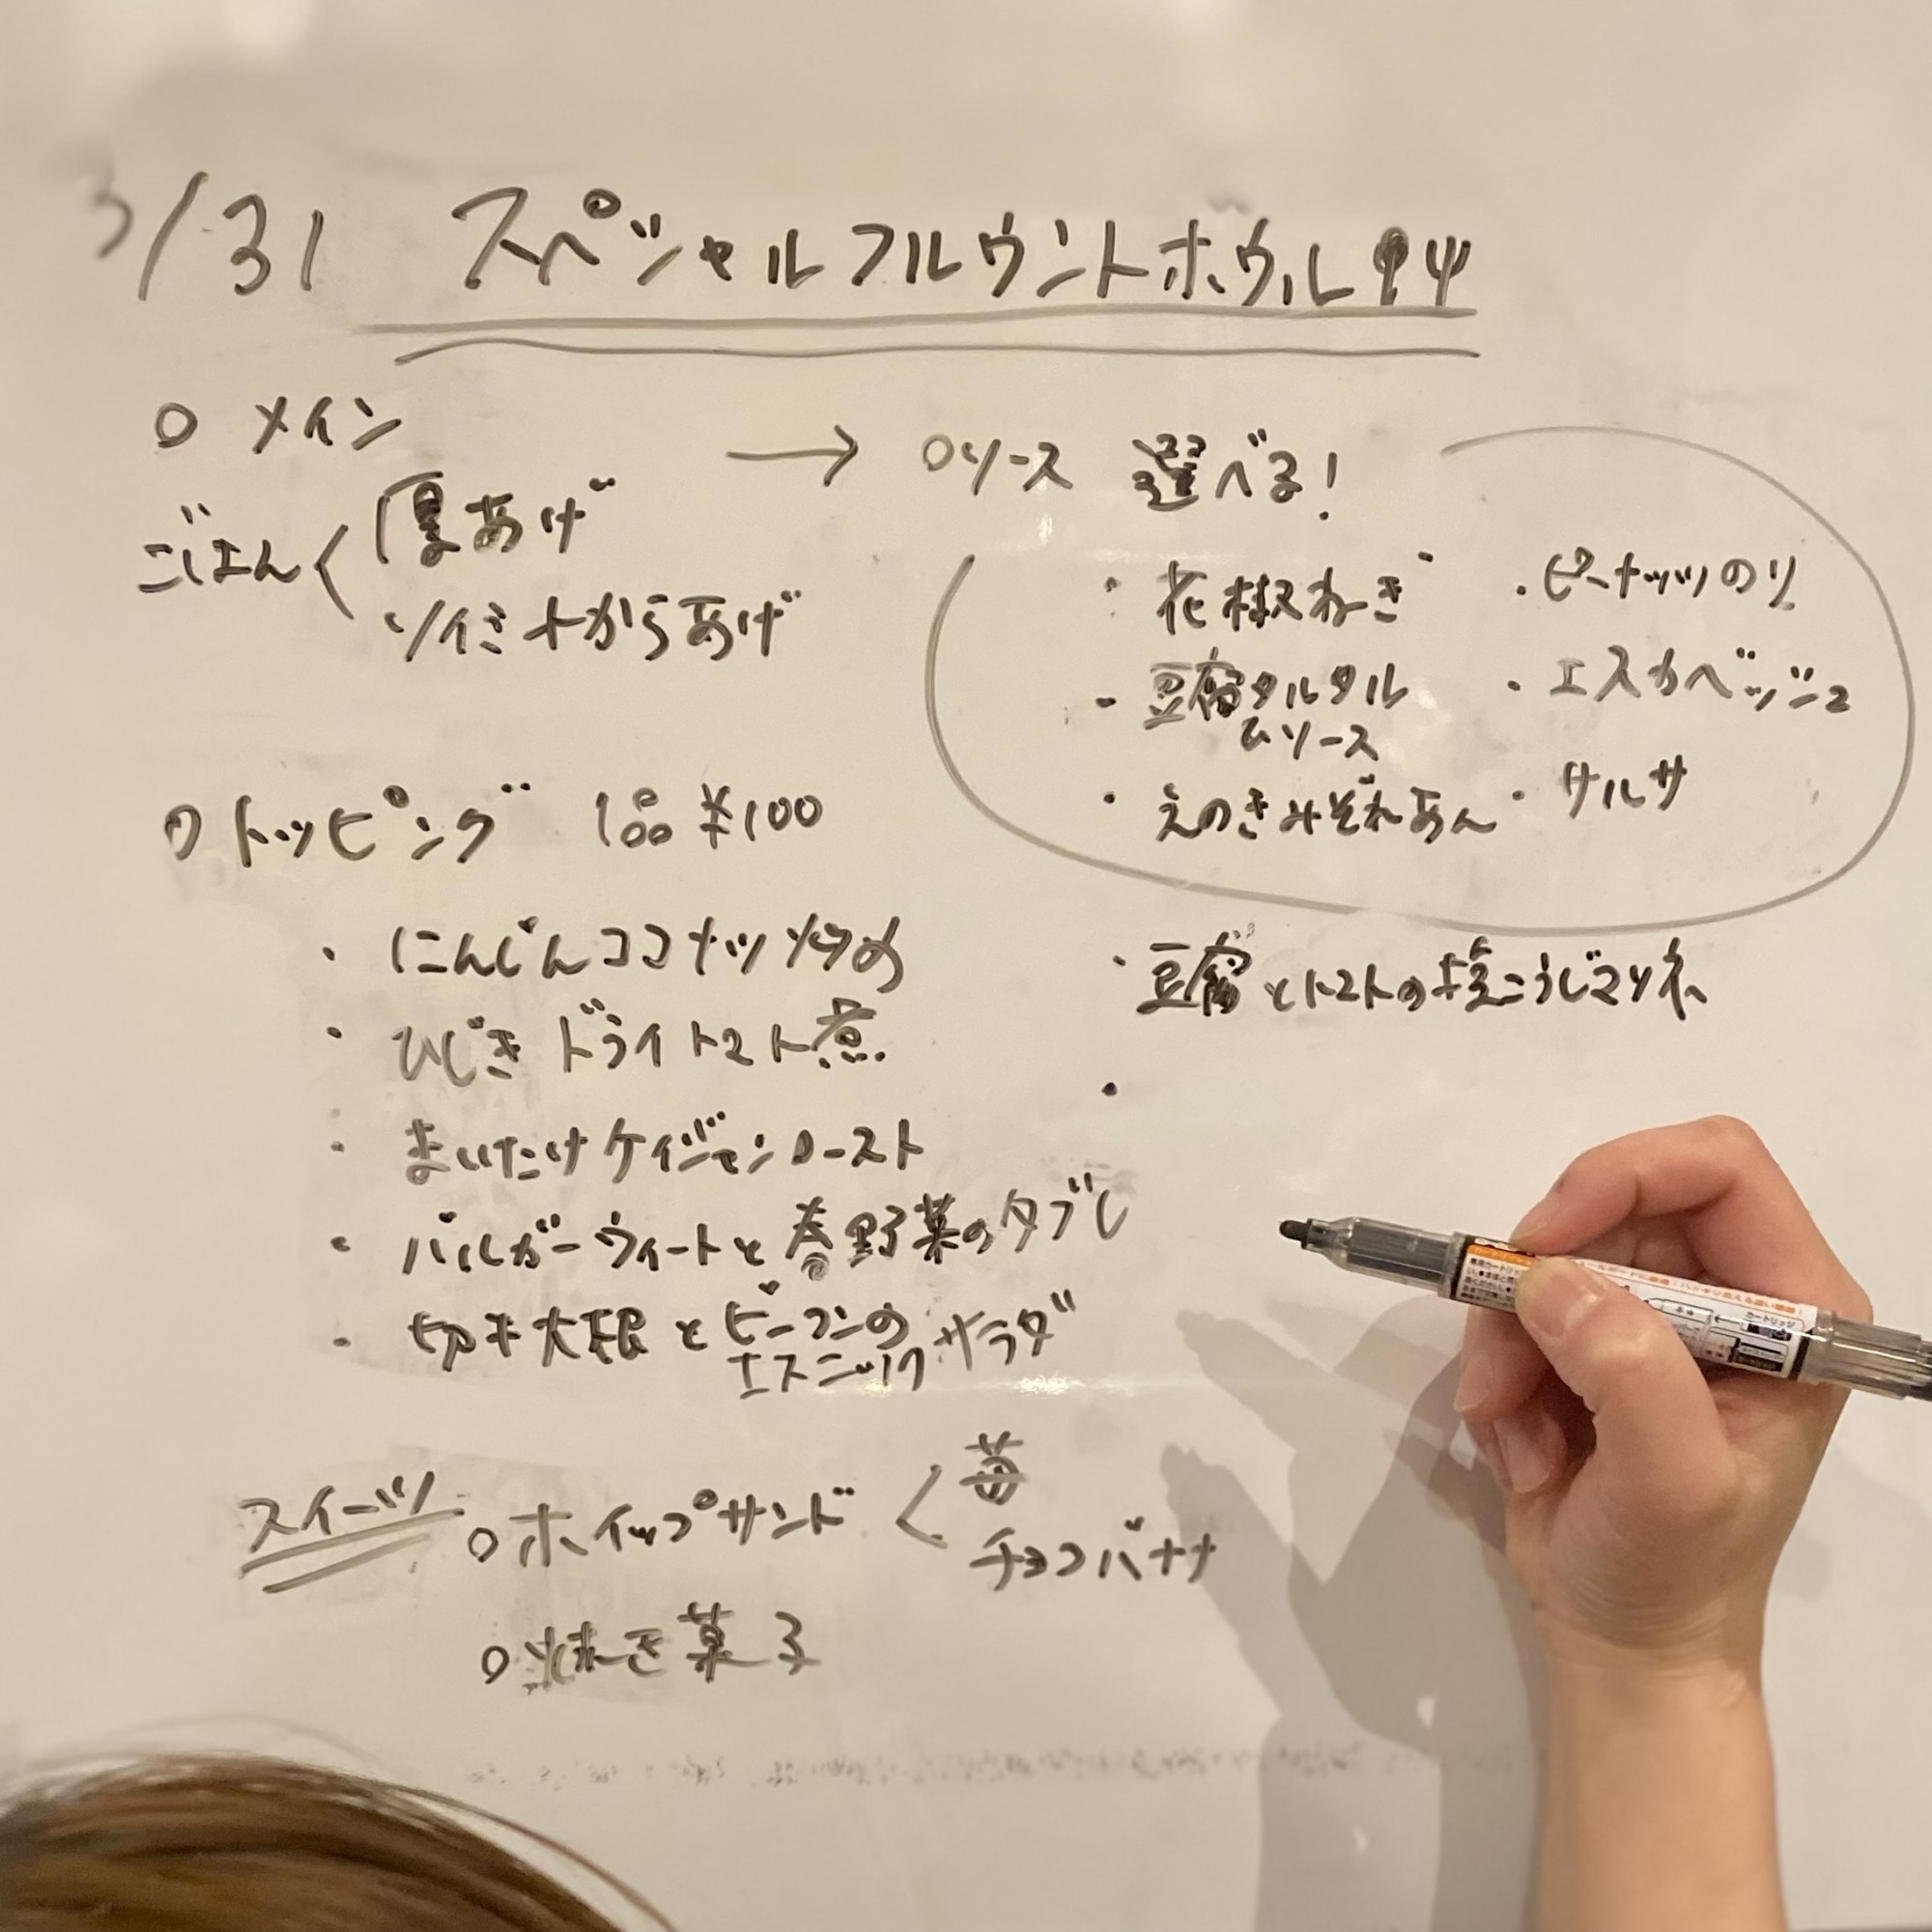 3/31 スペシャルフルウントボウル
○ メイン
ごはん
厚あげ
ソイミートからあげ
→ ○ソース 選べる!
・花椒ねぎ
・豆腐タルタル
ソース
・えのきみぞれあん
・ピーナッツのり
・エスカベッシュ
・サルサ
○トッピング 1品 ¥100
・にんじんココナッツ炒め
・ひじきドライトマト煮
・まいたけケイジャンロースト
・バルガーウィートと春野菜のタブレ
・切干大根とビーフンの
エスニックサラダ
・豆腐とトマトの塩こうじマリネ
・
スイーツ
○ホイップサンド
苺
チョコバナナ
○焼き菓子